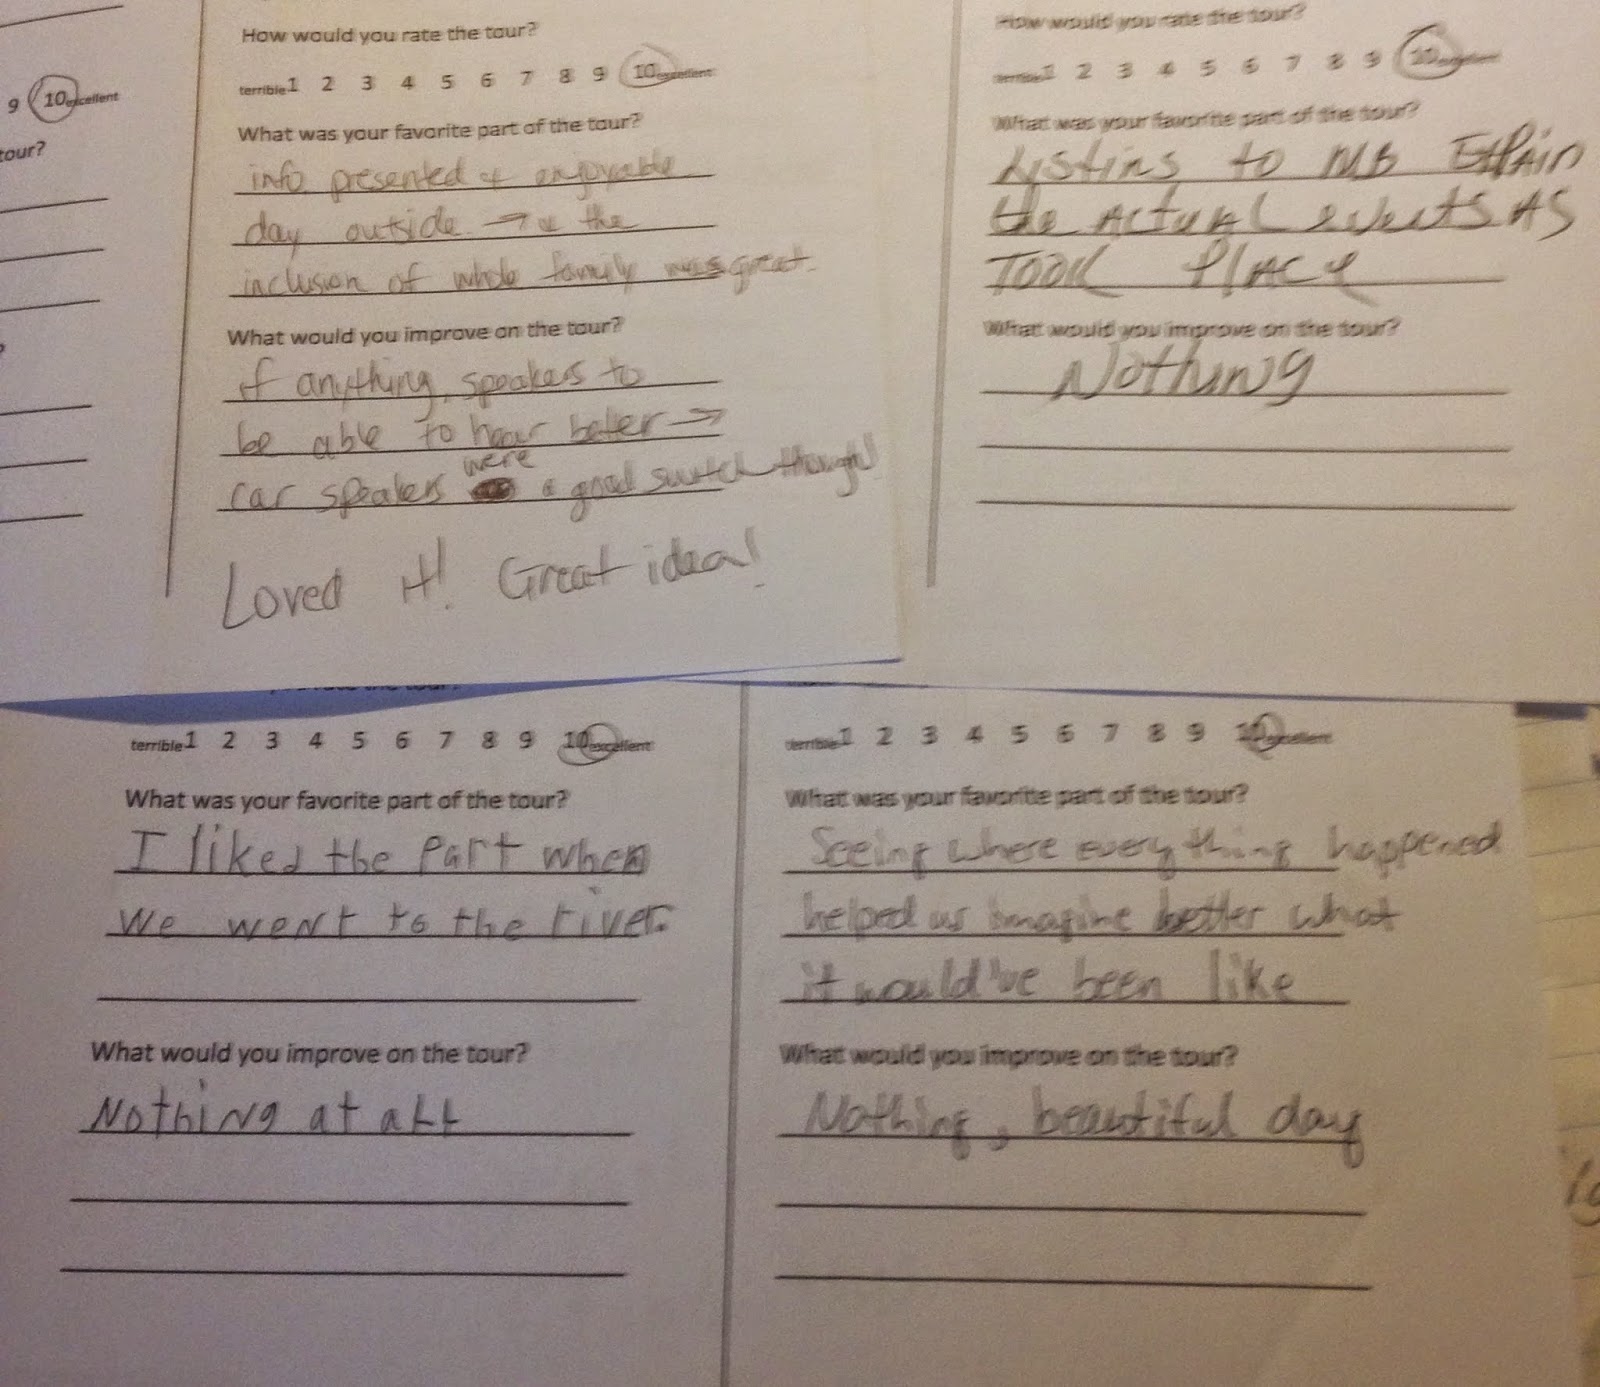 9 10 excellent
tour?
How would you rate the tour?
terrible 1 2 3 4 5 6 7 8 9 10 excellent
What was your favorite part of the tour?
info presented & enjoyable
day outside → & the
inclusion of whole family was great.
What would you improve on the tour?
if anything, speakers to
be able to hear better →
car speakers were a good switch though!
Loved it! Great idea!
How would you rate the tour?
terrible 1 2 3 4 5 6 7 8 9 10 excellent
What was your favorite part of the tour?
Lystins to MB Explain
the Actual events AS
TOOK PlACe
What would you improve on the tour?
Nothing
terrible 1 2 3 4 5 6 7 8 9 10 excellent
What was your favorite part of the tour?
I liked the part when
we went to the river.
What would you improve on the tour?
Nothing at all
terrible 1 2 3 4 5 6 7 8 9 10 excellent
What was your favorite part of the tour?
Seeing where everything happened
helped us imagine better what
it would've been like
What would you improve on the tour?
Nothing, beautiful day